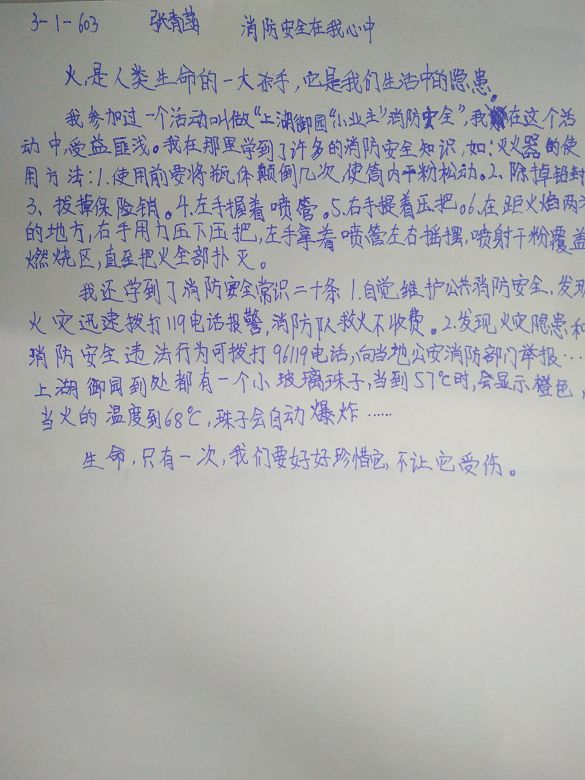 3-1-603 张青菡 消防安全在我心中
火,是人类生命的一大杀手,它是我们生活中的隐患。
我参加过一个活动叫做“上湖御园“小业主”消防安全”,我在这个活
动中,受益匪浅。我在那里学到了许多的消防安全知识,如:灭火器的使
用方法:1.使用前要将瓶体颠倒几次,使筒内干粉松动。2、除掉铅封
3、拔掉保险销。4.左手握着喷管。5.右手提着压把。6.在距火焰两
的地方,右手用力压下压把,左手拿着喷管左右摇摆,喷射干粉覆盖
燃烧区,直至把火全部扑灭。
我还学到了消防安全常识二十条1.自觉维护公共消防安全,发现
火灾迅速拨打119电话报警,消防队救火不收费。2.发现火灾隐患和
消防安全违法行为可拨打96119电话,向当地公安消防部门举报…
上湖御园到处都有一个小玻璃珠子,当到57℃时,会显示橙色,
当火的温度到68℃,珠子会自动爆炸……
生命,只有一次,我们要好好珍惜它,不让它受伤。